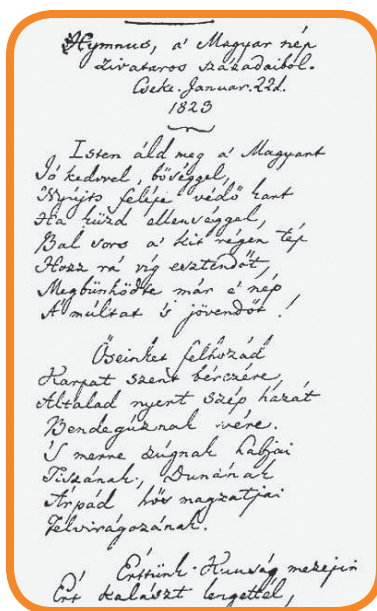 Hymnus, a' Magyar nép
zivataros századaiból.
Cseke. Januar. 22d.
1823
Isten áld meg a' Magyart
Jó kedvvel, bőséggel,
Nyújts feléje védő kart
Ha küzd ellenséggel,
Bal sors a' kit régen tép
Hozz rá víg esztendőt,
Megbűnhődte már e' nép
A' múltat 's jövendőt!
Őseinket felhozád
Karpat szent bérczére,
Általad nyert szép hazát
Bendegúznak vére.
'S merre zúgnak habjai
Tiszának, Dunának
Árpád hős magzatjai
Felvirágozának.
Értünk Kunság mezejin
Ért kalászt lengettél,